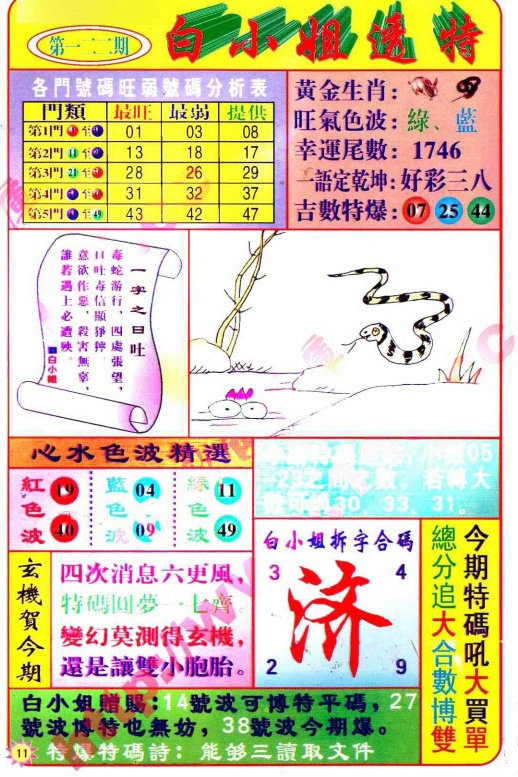 第一二二期
白小姐透特
各門號碼旺弱號碼分析表
門類 最旺 最弱 提供
第1門 至 01 03 08
第2門 11 至 13 18 17
第3門 21 至 28 26 29
第4門 至 31 32 37
第5門 至 49 43 42 47
黃金生肖：
旺氣色波：綠、藍
幸運尾數：1746
一語定乾坤：好彩三八
吉數特爆：07 25 44
一字之曰吐
毒蛇游行，四處張望，
口吐毒信顯猙獰，
意欲作惡，殺害無辜，
誰若遇上必遭殃
白小姐
心水色波精選
紅色波 19 40
藍色波 04 09
綠色波 11 49
05
-23之間之數，若轉大
30、33、31。
玄機賀今期
四次消息六更風，
特碼圓夢一七齊。
變幻莫測得玄機，
還是讓雙小胞胎。
白小姐拆字合碼
3 4
济
2 9
今期特碼吼大買單
總分追大合數博雙
白小姐贈賜：14號波可博特平碼，27
號波博特也無妨，38號波今期爆。
特爆特碼詩：能够三讀取文件
11